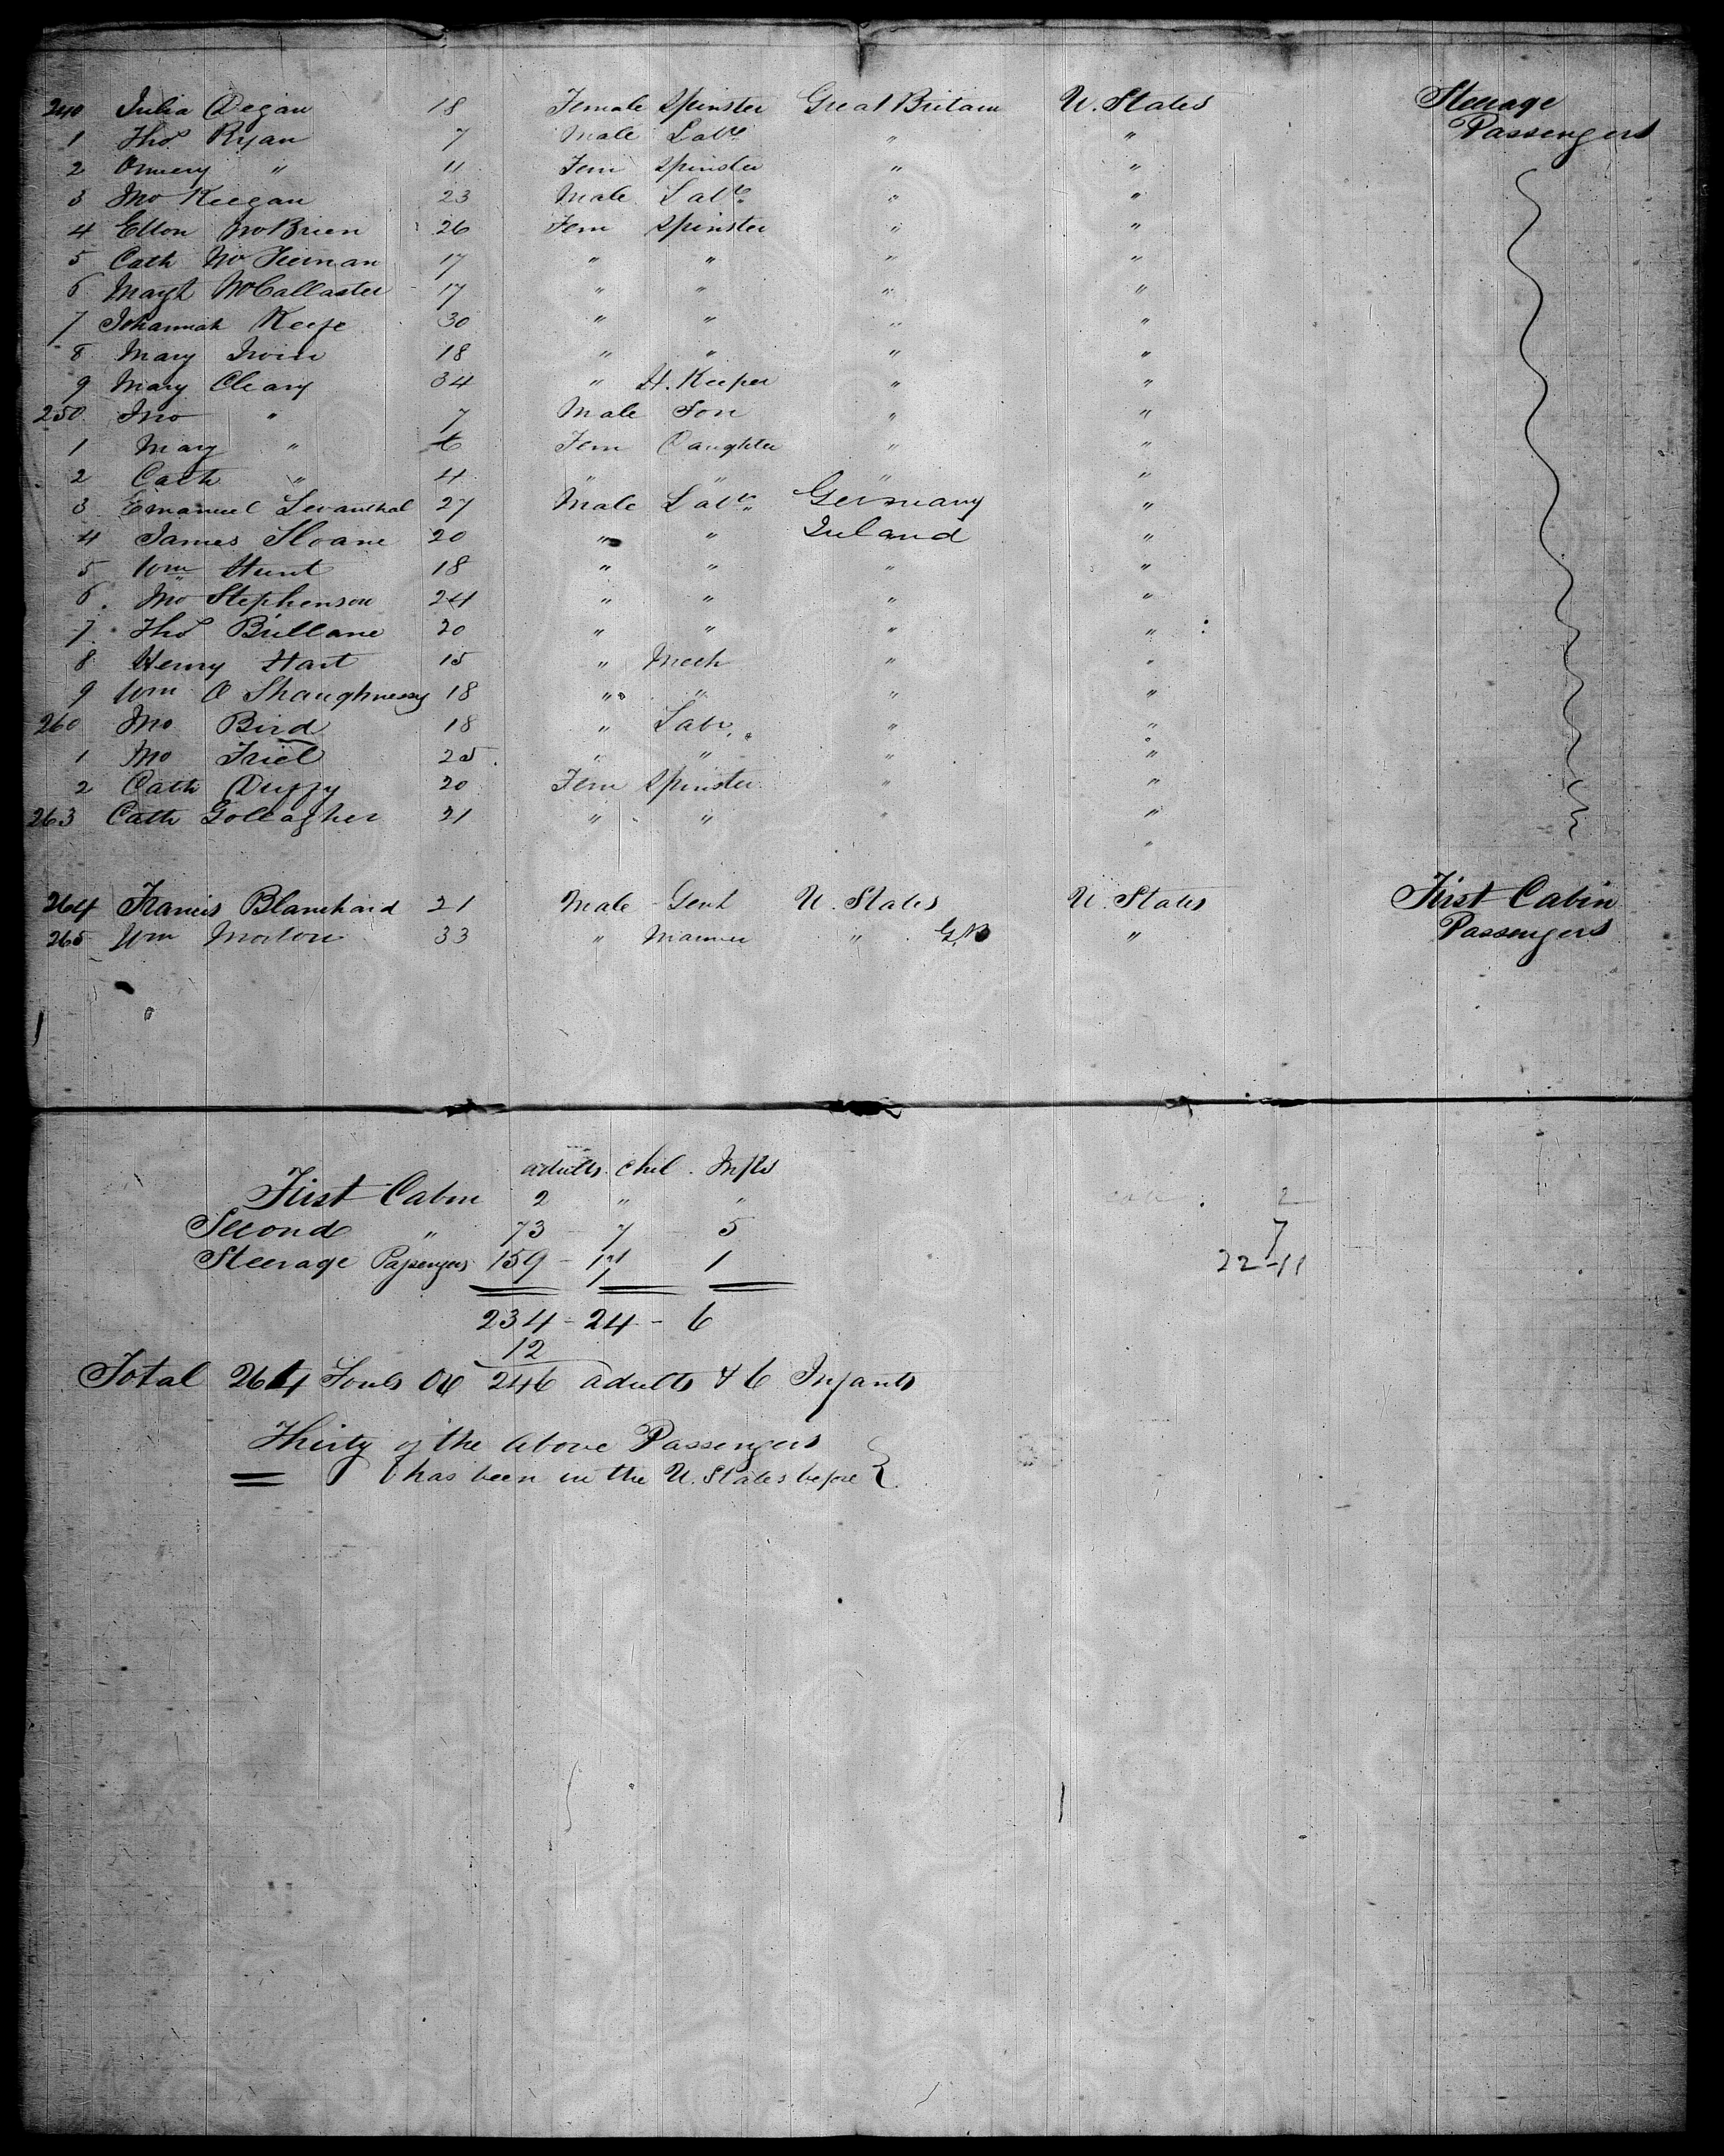 240 Julia Degan 18 Female Spinster Great Britain U. States Steerage
1 Thos Ryan 7 Male Labr " " Passengers
2 " 11 Fem Spinster " "
3 Jno Keegan 23 Male Labr " "
4 Ellen McBrien 26 Fem Spinster " "
5 Cath McKiernan 17 " " " "
6 Margt McCallaster 17 " " " "
7 Johannah Keefe 30 " " " "
8 Mary Irwin 18 " " " "
9 Mary Cleary 34 " H. Keeper " "
250 Jno " 7 Male Son " "
1 Mary " 6 Fem Daughter " "
2 Cath " 4 " " " "
3 Emanuel Levanthal 27 Male Labr Germany "
4 James Sloane 20 " " Ireland "
5 Wm Hunt 18 " " " "
6 Jno Stephenson 24 " " " "
7 Thos Brillane 20 " " " "
8 Henry Hart 15 " Mech " "
9 Wm O Shaughnessy 18 " " " "
260 Jno Bird 18 " Labr " "
1 Jno Friel 25 " " " "
2 Cath Duffy 20 Fem Spinster " "
263 Cath Gollagher 21 " " " "
"
264 Francis Blanchard 21 Male Gent U. States U. States First Cabin
265 Wm Morton 33 " Mariner " G.B " Passengers
adults. chil. Infts
First Cabin 2 " " 2
Second " 73 - 7 - 5 7
Steerage Passengers 159 - 1 22-11
234 - 24 - 6
12
Total 264 Souls Or 246 adults & 6 Infants
Thirty of the above Passengers
has been in the U. States before